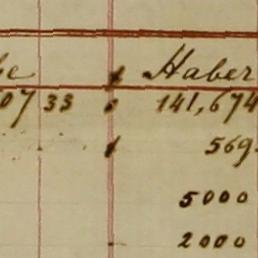 Haber
07 33 141,674
569
5000
2000